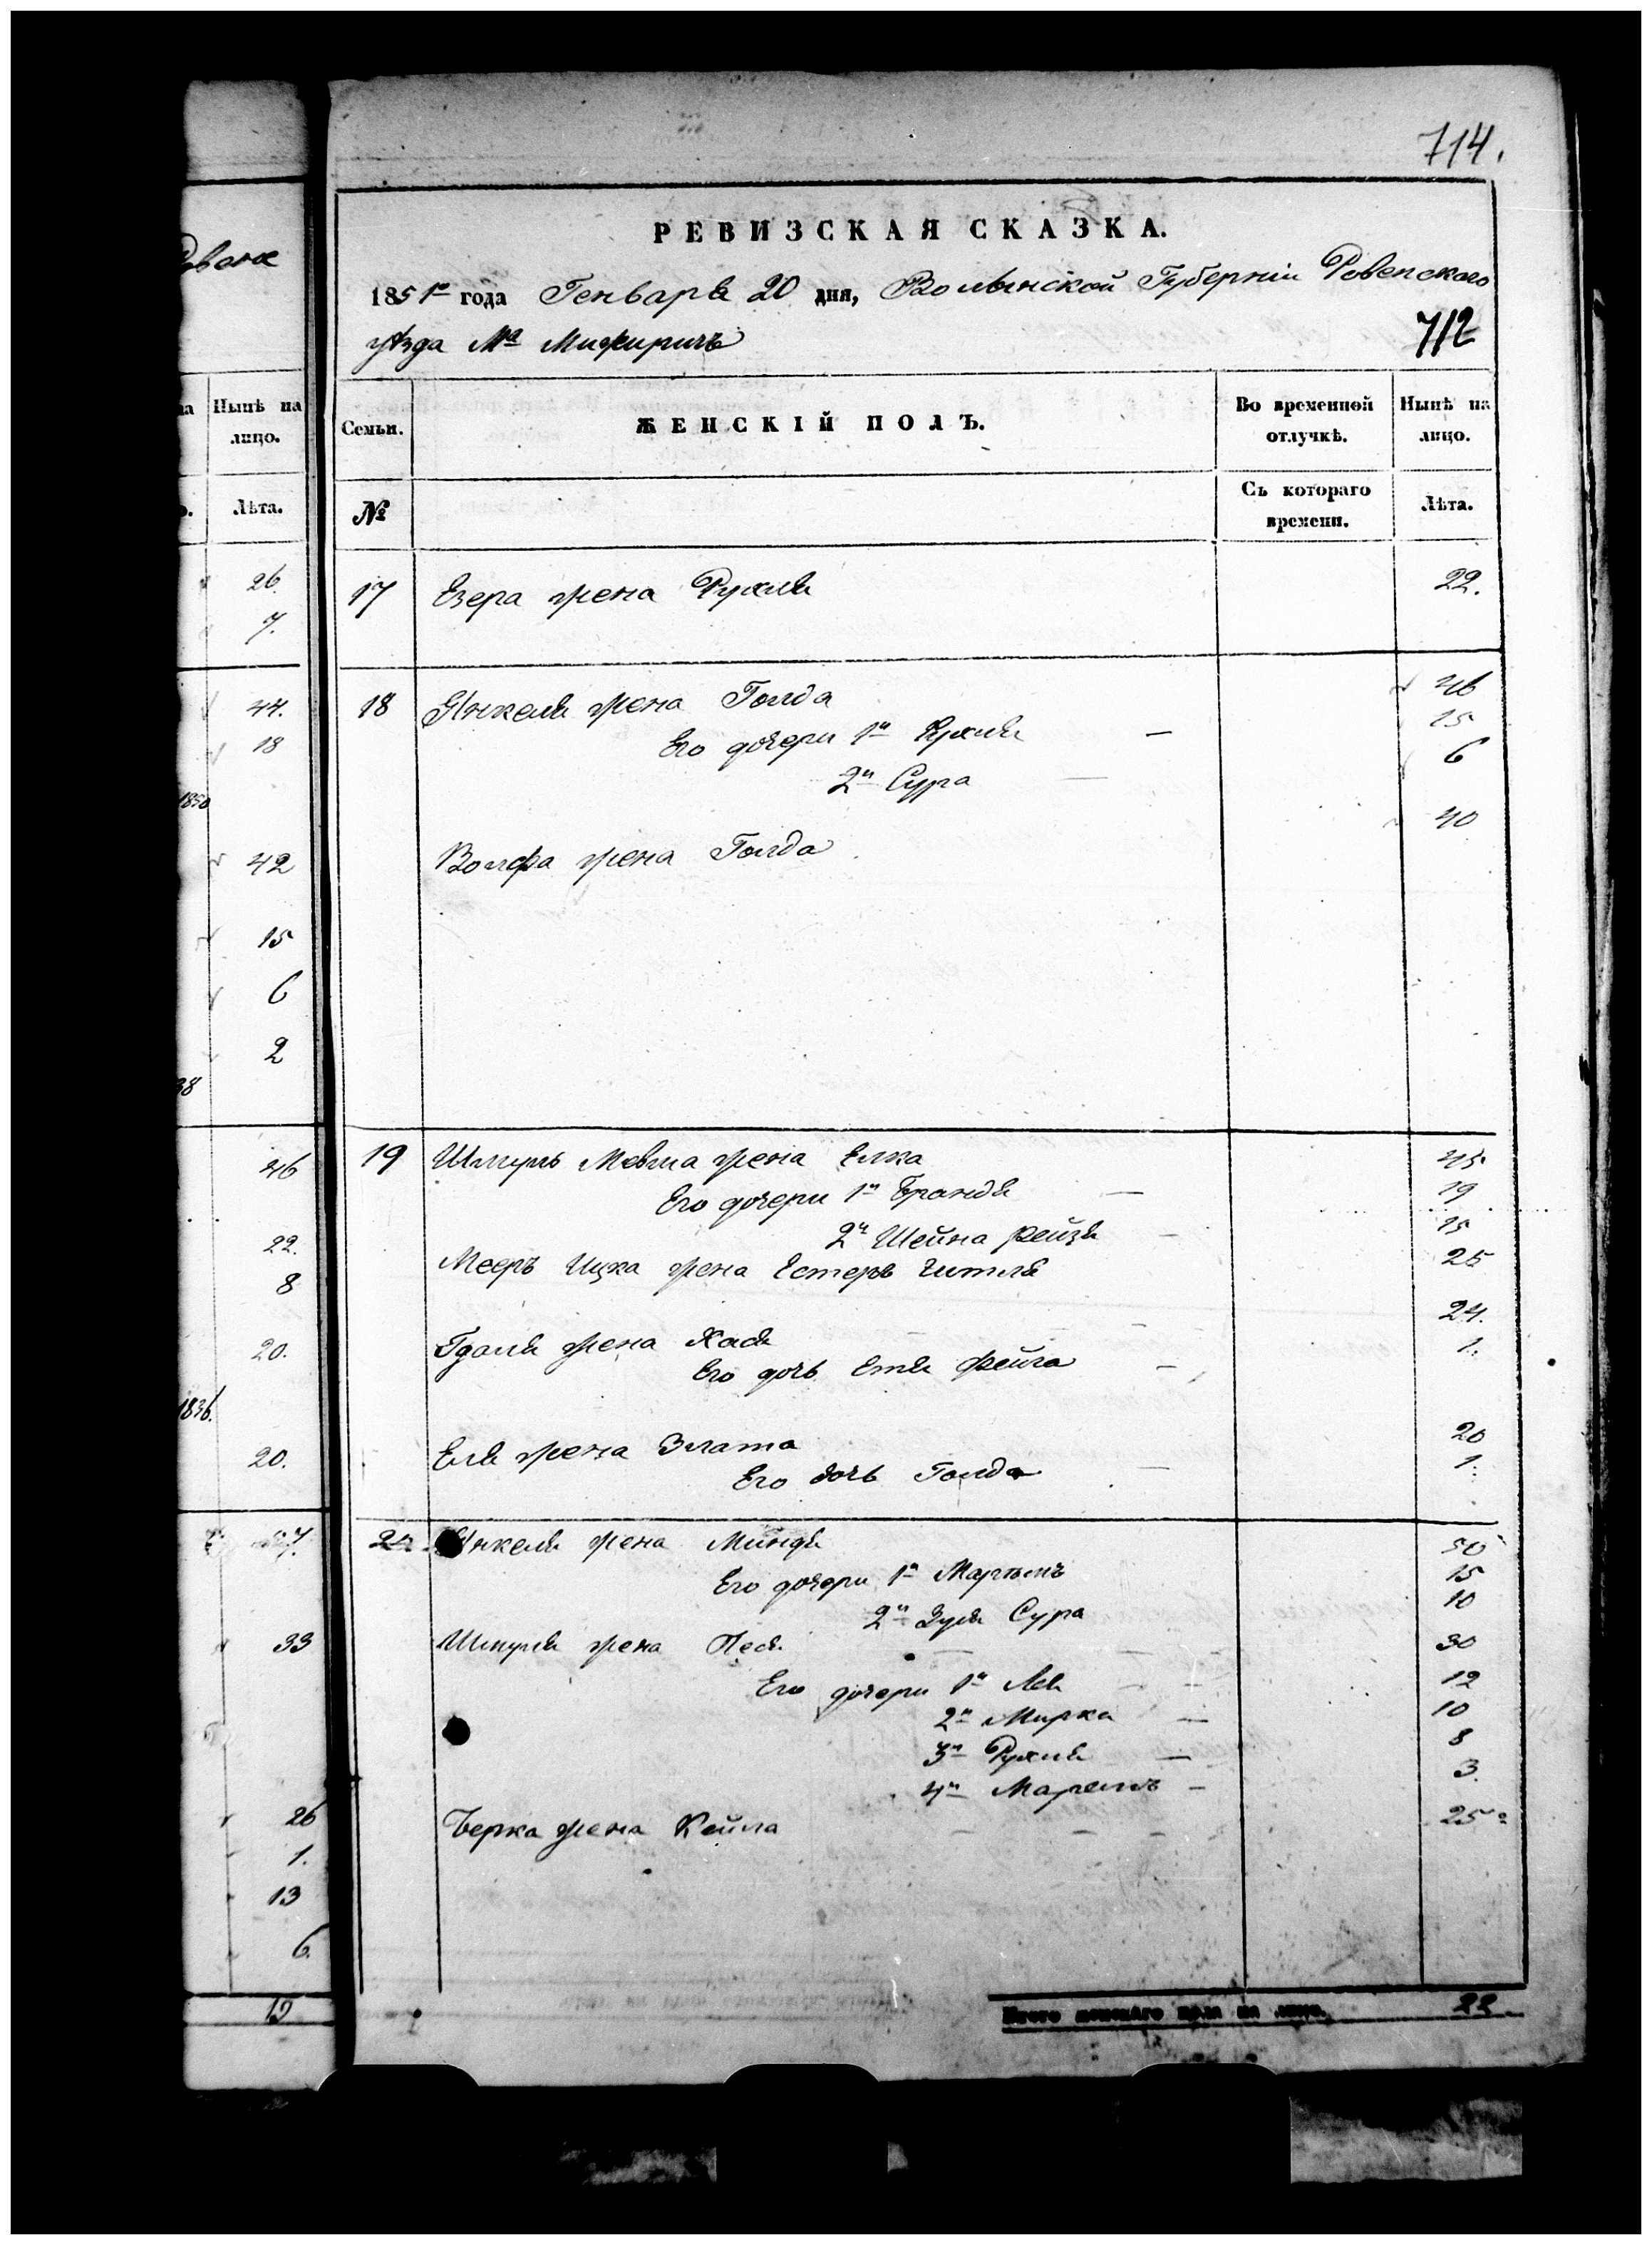 714.
РЕВИЗСКАЯ СКАЗКА.
1851го года Генваря 20 дня, Волынской Губерніи Ровенскаго
уѣзда Ма Межиричъ
712
Нынѣ на лицо.
Лѣта.
26.
7.
44.
18
1850
42
15
6
2
38
46
22.
8
20.
1836.
20.
33
26
1.
13
6.
19
Семьи. ЖЕНСКІЙ ПОЛЪ. Во временной отлучкѣ. Нынѣ на лицо.
№ Съ котораго времени. Лѣта.
17 Езера жена Рухля 22.
18 Янкеля жена Голда 46
Его дочери 1я Рухля — 15
2я Сура — 6
Волфа жена Голда 40
19 Шмуль Мевша жена Елка 45
Его дочери 1я Брандя — 19
2я Шейна Рейзя — 15
Мееръ Ицка жена Естеръ Гитля 25
Гдаля жена Хася — 24.
Его дочь Етя Фейга — 1.
Еля жена Злата 20
Его дочь Голда — 1.
Янкеля жена Миндя 50
Его дочери 1я Марьямъ 15
2я Зуля Сура 10
Шмуля жена Песя — 30
Его дочери 1я Лея — 12
2я Мирка — 10
3я Рухля — 8
4я Марьямъ — 3.
Берка жена Кейла — 25
Итого женскаго пола на лицо. 22